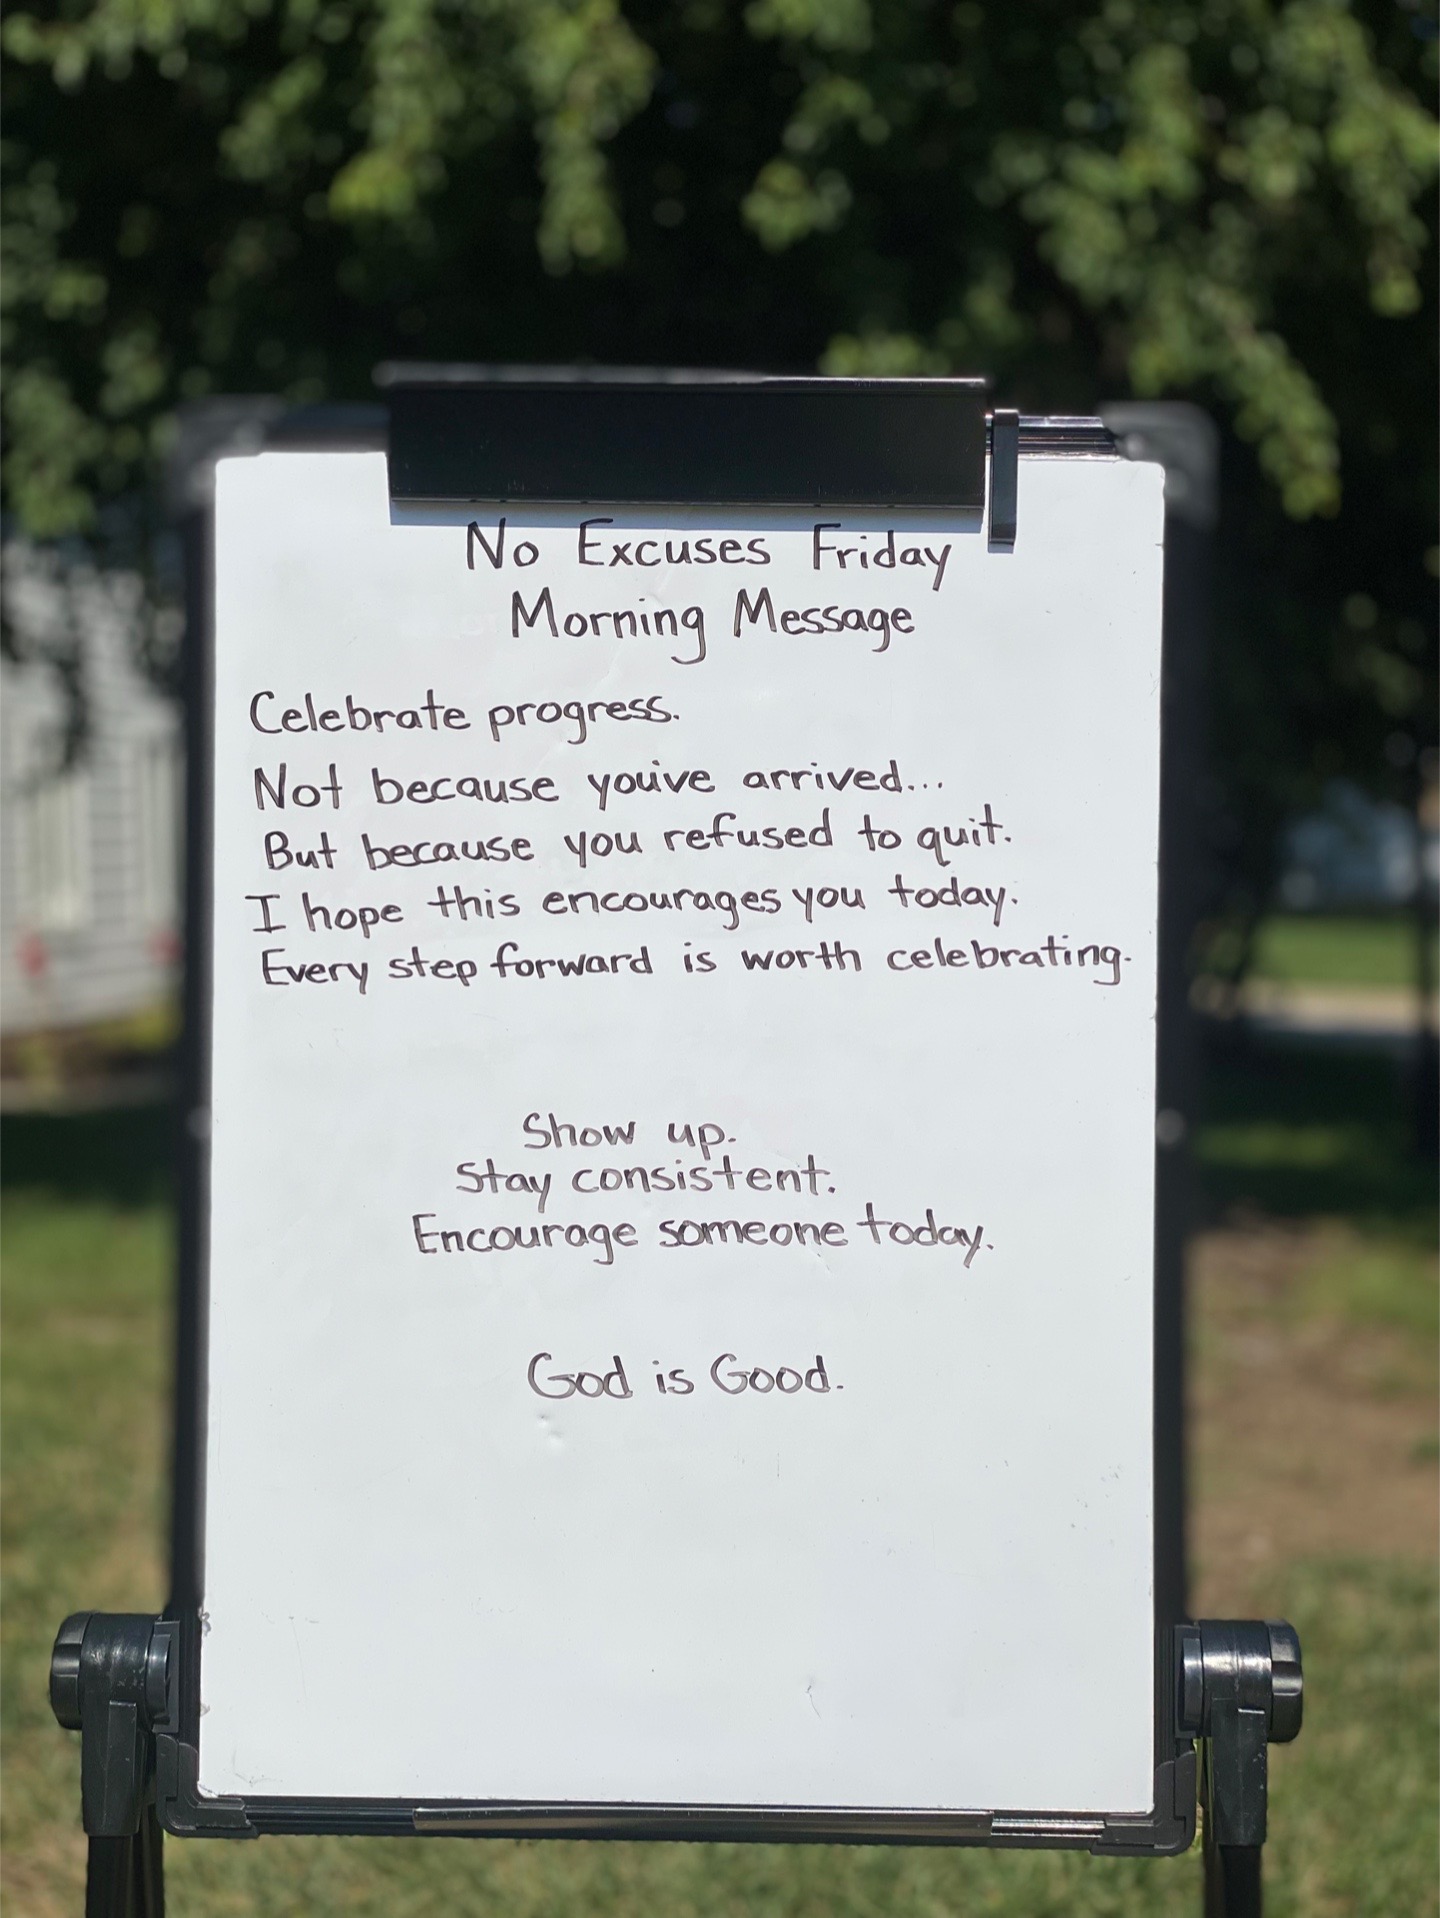 No Excuses Friday
Morning Message
Celebrate progress.
Not because you've arrived...
But because you refused to quit.
I hope this encourages you today.
Every step forward is worth celebrating.
Show up.
Stay consistent.
Encourage someone today.
God is Good.